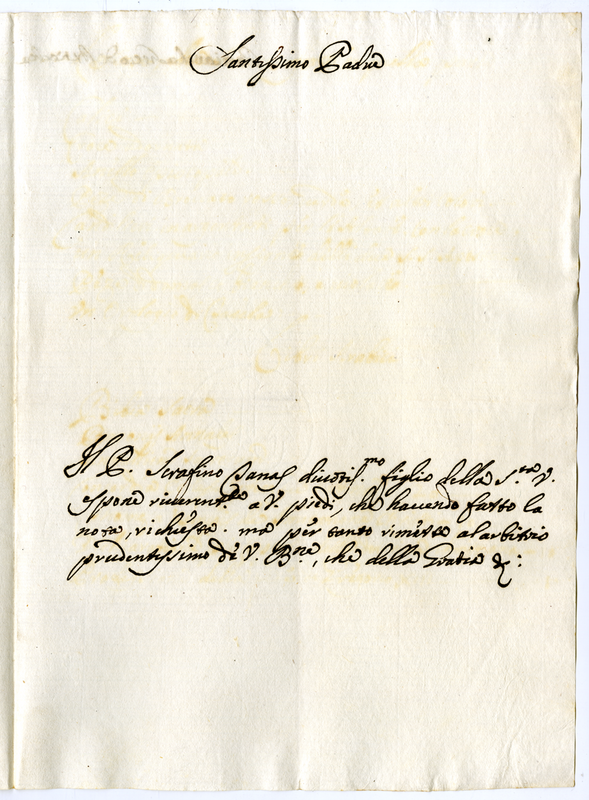 Santissimo Padre
Il P. Serafino Panas divotis.mo figlio della S.tà V.
espone riverent.te a V. piedi, che havendo fatto la
nota, richiesta. ma per tanto rimette al arbitrio
prudentissimo di V. B.ne, che della Gratia &: